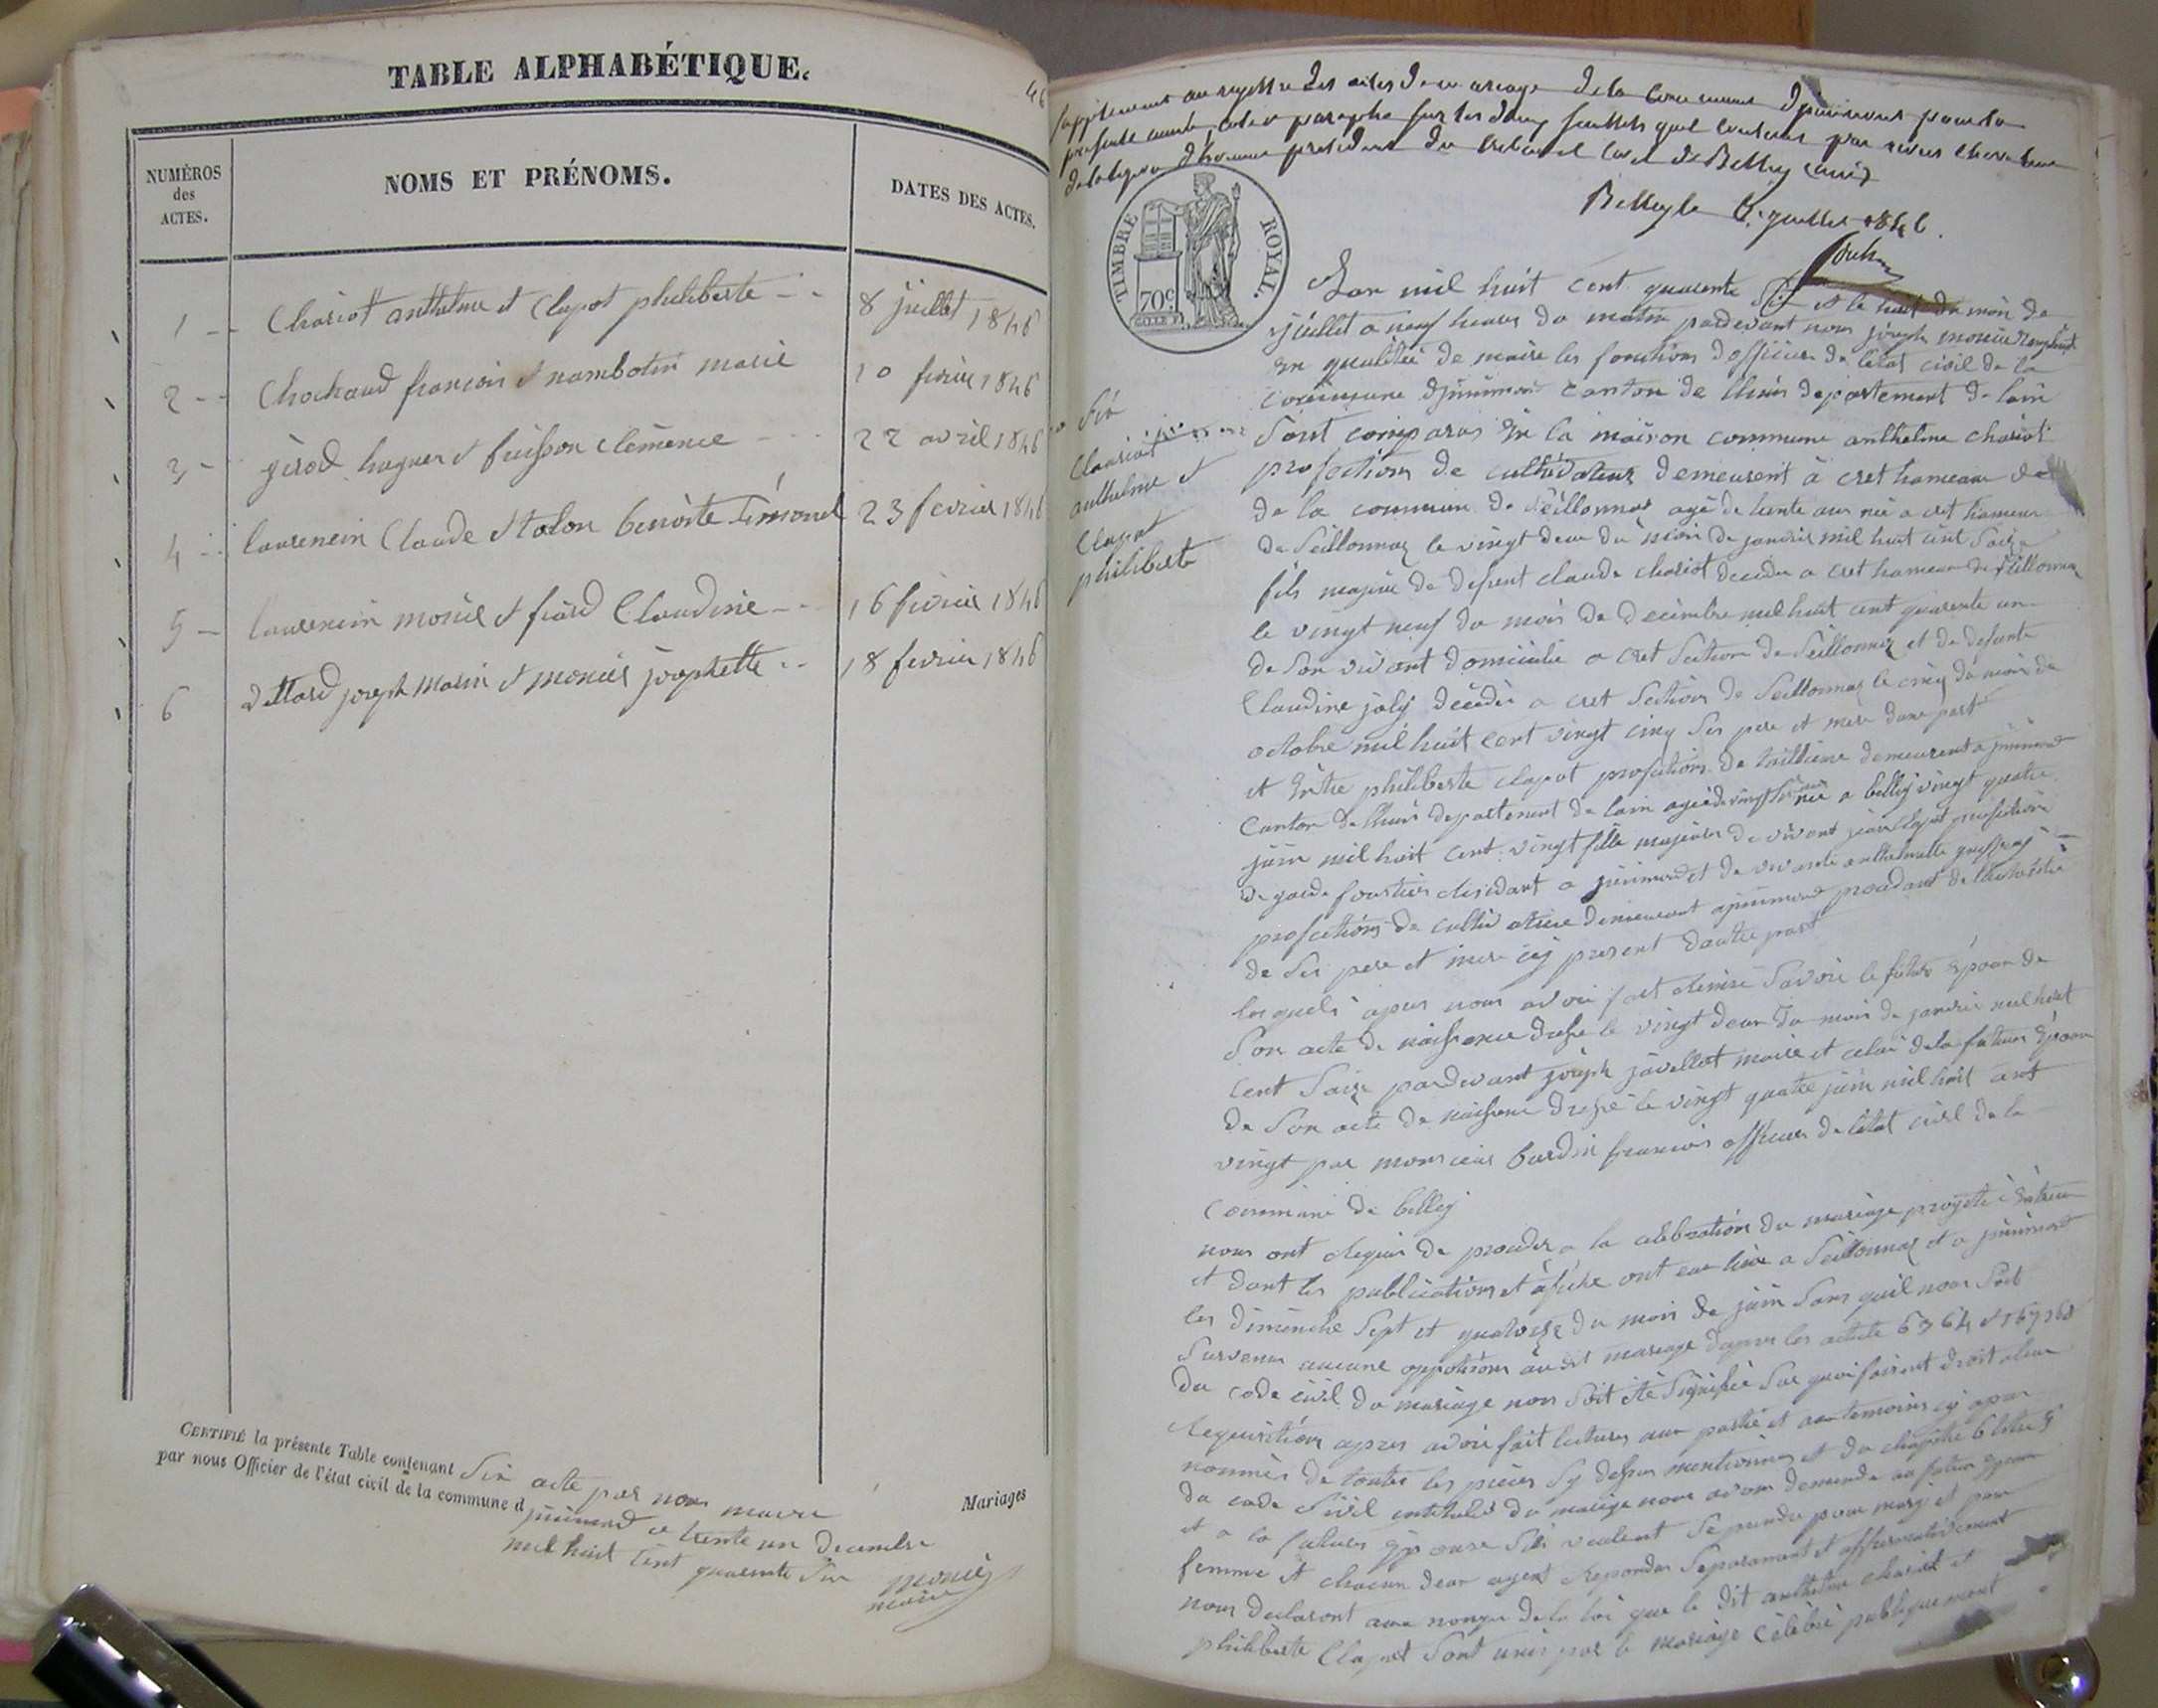 TABLE ALPHABÉTIQUE.
46
NUMÉROS
des
ACTES.
NOMS ET PRÉNOMS.
DATES DES ACTES.
1 — Chariot anthelme et Clapot philiberte — 8 juillet 1846
2 — Chochaud francois et nambotin marie 10 fevrier 1846
3 — girod hugues et buisson Clemence — 22 avril 1846
4 — laurencin Claude et tolon benoite 23 fevrier 1846
5 — laurencin et fiard Claudine — 16 fevrier 1846
6 joseph marin et monier josephette 18 fevrier 1846
CERTIFIÉ la présente Table contenant Six acte par nous maire
par nous Officier de l'état civil de la commune d jnimond ce trente un decembre
mil huit cent quarente Six
monier
maire
Mariages
au registre des actes de mariage de la Commune Djnimond pour la
presente année par
president du tribunal Civil de Belley
Belley le juillet 1846.
TIMBRE ROYAL.
70c
Lan mil huit cent quarente Six et le huit du mois de
juillet a neuf heures du matin pardevant nous joseph monier
en qualitée de maire les fonctions dofficier de letat civil de la
commune djnimond canton de lhuis departement de lain
Sont comparus en la maison commune anthelme chariot
profection de cultivateur demeurent à cret hameau de
de la commune de Seillonnaz agé de trente ans née a cret hameau
de Seillonnaz le vingt deux du mois de janvier mil huit cent Saize
fils majeur de defunt claude chariot decedé a cret hameau de Seillonnaz
le vingt neuf du mois de decembre mil huit cent quarente un
de Son vivant domicilié a cret Section de Seillonnaz et de defunte
Claudine joly décédée a cret Section de Seillonnaz le cinq du mois de
octobre mil huit cent vingt cinq Ses pere et mère dune part
et Entre philiberte clapot profection de taillieuse demeurent a jnimond
Canton de lhuis departement de lain agée de vingt Six ans née a belley vingt quatre
juin mil huit cent vingt fille majeure de vivant jean Clapot profection
de garde foretier residant a jnimond et de vivante anthelmette
profection de cultivatrice demeurant a jnimond
de Ses pere et mere icy present dautre part
lesquels apres nous avoir fait remise Savoir le futur Epoux de
Son acte de naissance dressé le vingt deux du mois de janvier mil huit
Cent Saize pardevant joseph javellot maire et celui de la future Epouse
de Son acte de naissance dressé le vingt quatre juin mil huit cent
vingt par monsieur burdin francois officier de létat civil de la
commune de belley
nous ont requis de proceder a la celebration du mariage projeté Entreux
et dont les publications et afiche ont eue lieu a Seillonnaz et a jnimond
les dimenche Sept et quatorze du mois de juin Sans quil nous Soit
Survenu aucune oppotion audit mariage dapres les article 63 64 et 167 168
du code civil du mariage non Soit été Signifiée Sur quoi faisant droit a leur
Requisition apres avoir fait lectures aux partie et aux temoins cy apres
nommés de toutes les pièces Sy dessus mentionnées et du chapitre 6 titre 5
du code Sivil intitulés du mariage nous avons demendé au futur Epoux
et a la future Epouse Sils veulent Se prendre pour mary et pour
femme et chacun deux ayent Repondus Separemant et affirmativement
nous declaront au nom de la loi que le dit anthelme chariot et
philiberte Clapot Sont unis par le mariage Célébré publiquement
Six
Chariot
anthelme et
Clapot
philiberte